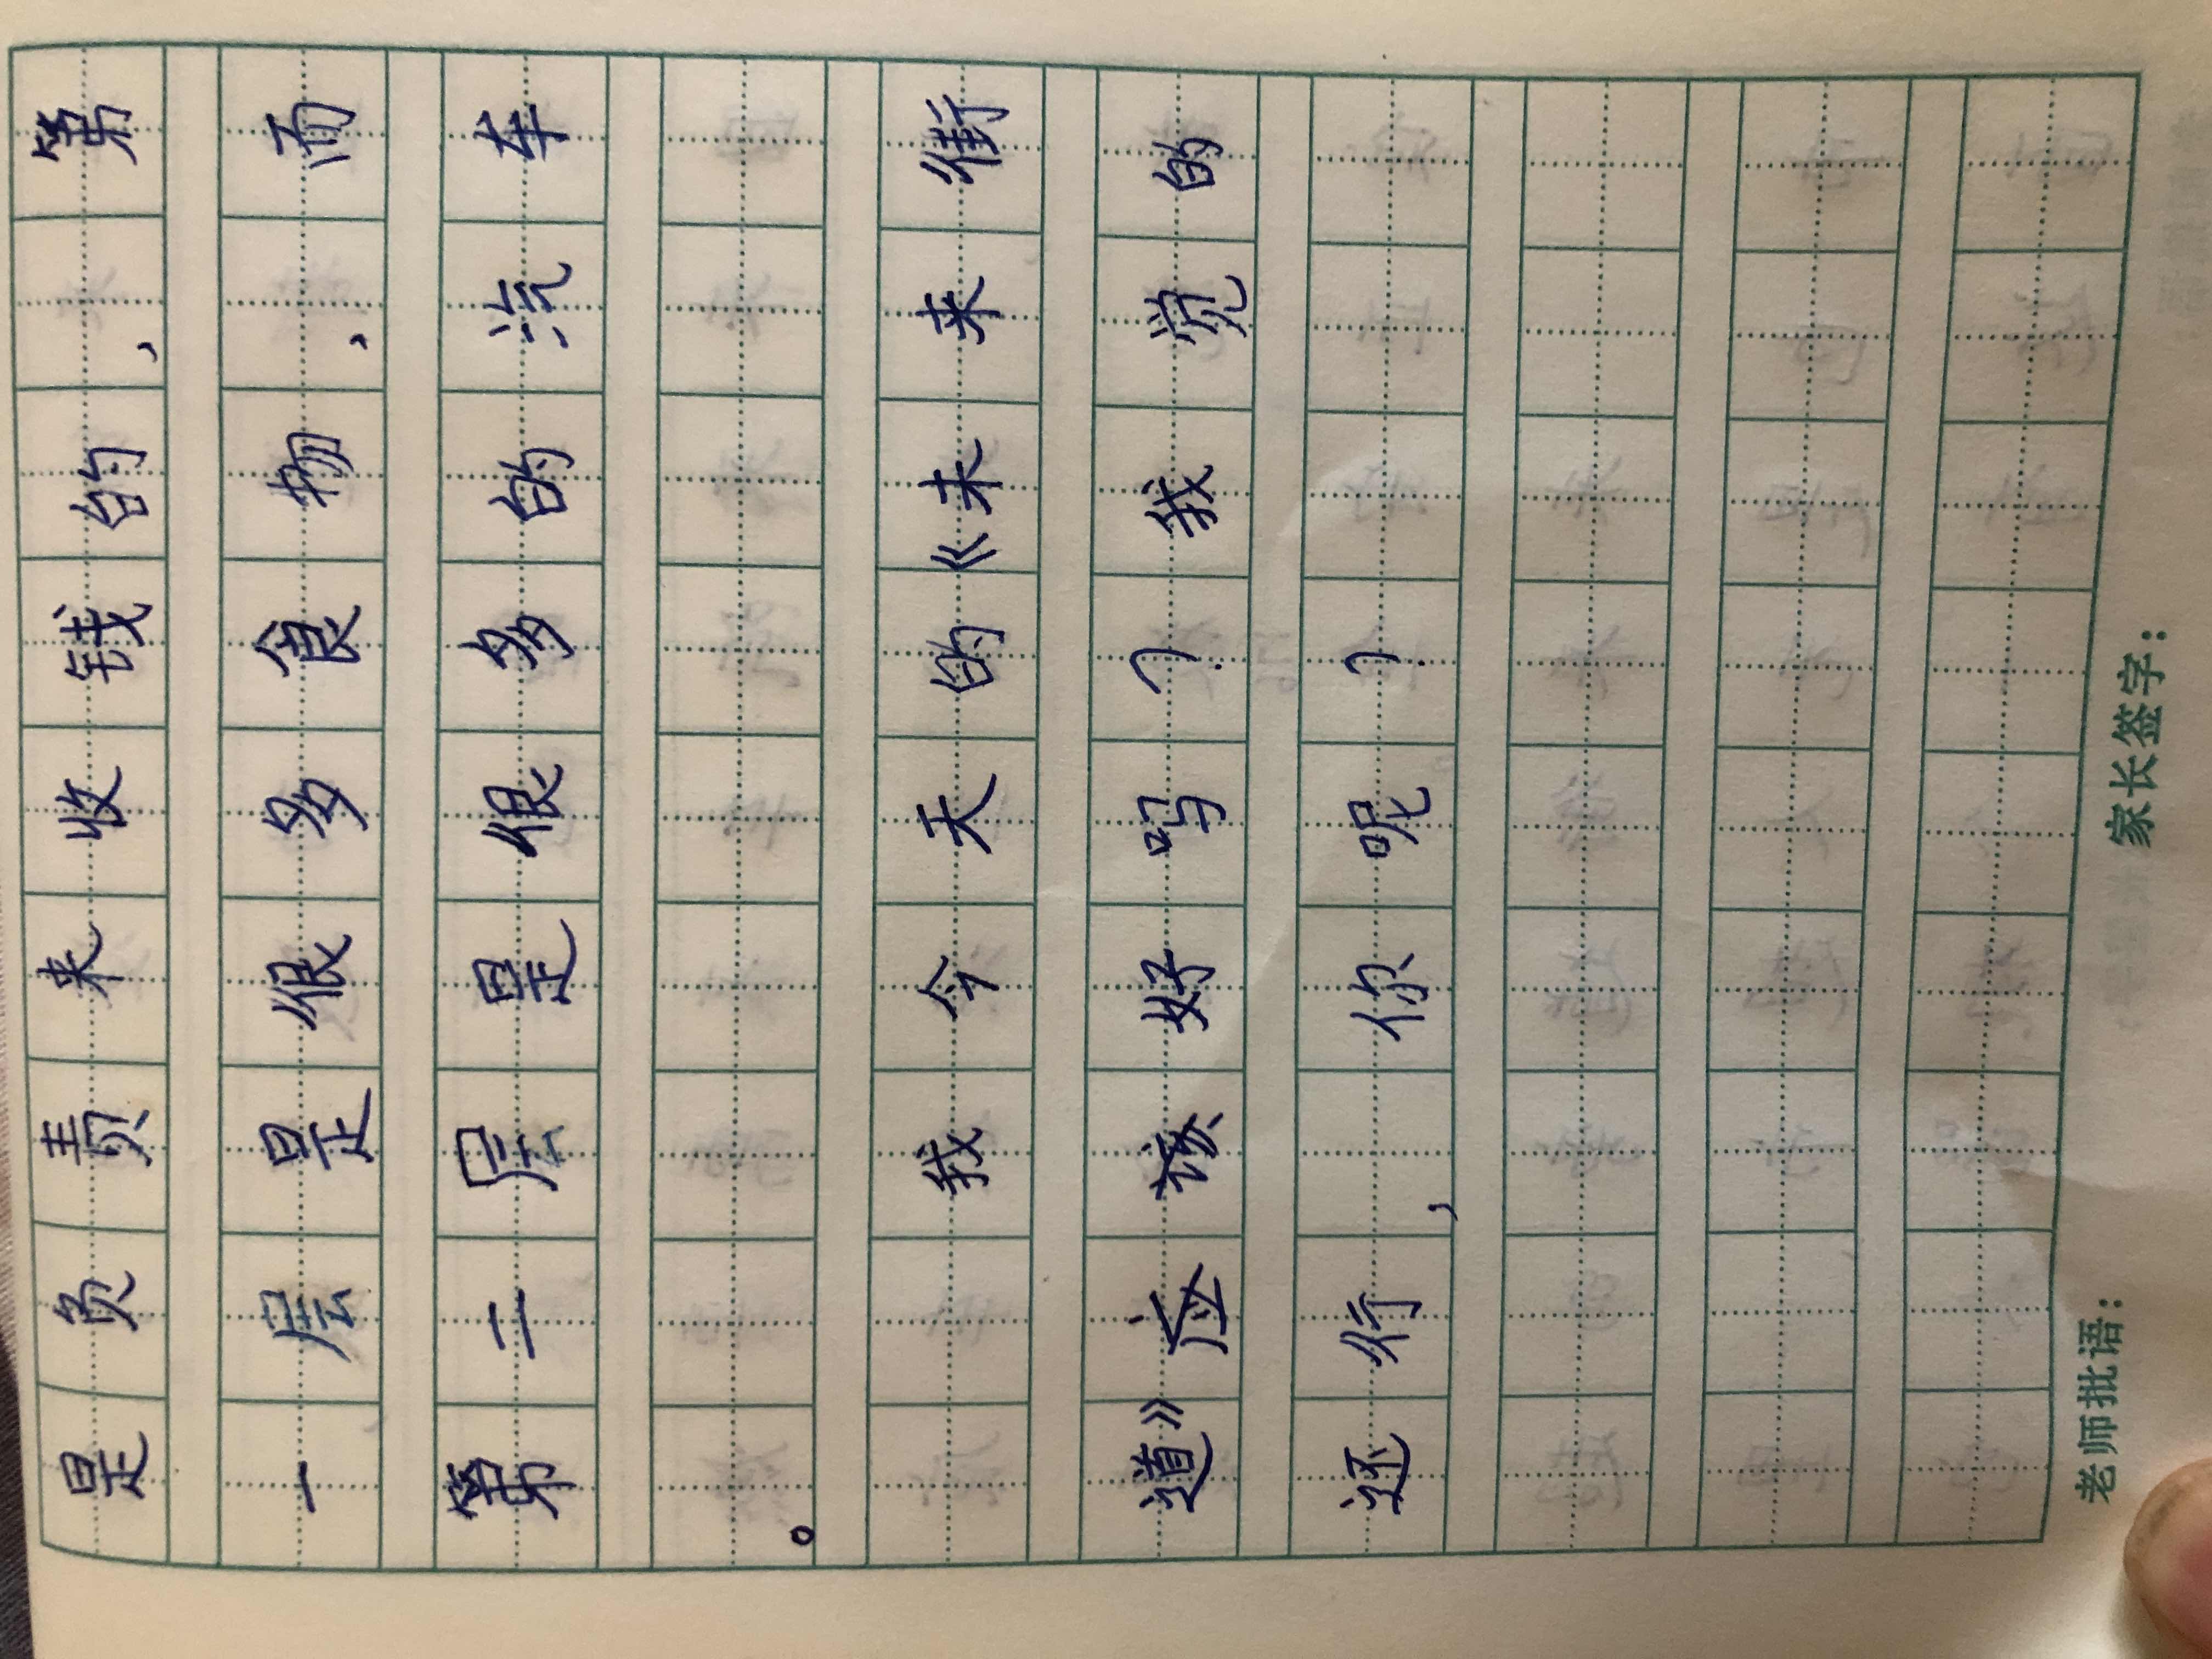 是负责来收钱的，第
一层是很多食物，而
第二层是很多的汽车
。
我今天的《未来街
道》应该好吗？我觉的
还行，你呢？
老师批语：
家长签字：